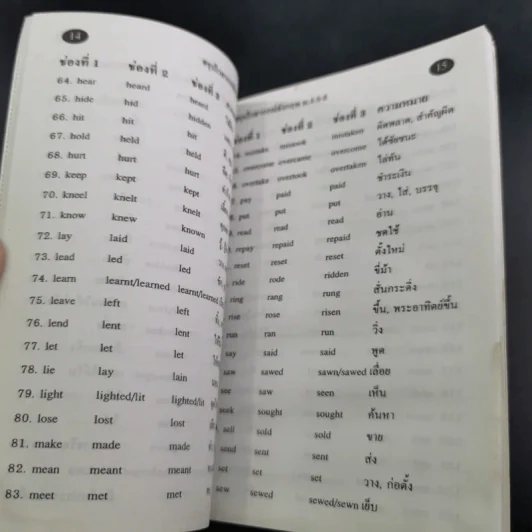 14
ช่องที่ 1 ช่องที่ 2 ช่องที่ 3
64. hear heard heard
65. hide hid hidden
66. hit hit hit
67. hold held held
68. hurt hurt hurt
69. keep kept kept
70. kneel knelt knelt
71. know knew known
72. lay laid laid
73. lead led led
74. learn learnt/learned learnt/learned
75. leave left left
76. lend lent lent
77. let let let
78. lie lay lain
79. light lighted/lit lighted/lit
80. lose lost lost
81. make made made
82. mean meant meant
83. meet met met
15
ที่ 1 ช่องที่ 2 ช่องที่ 3 ความหมาย
mistake mistook mistaken ผิดพลาด, สำคัญผิด
overcome overcame overcome ได้ชัยชนะ
overtake overtook overtaken ไล่ทัน
pay paid paid ชำระเงิน
put put put วาง, ใส่, บรรจุ
read read read อ่าน
repay repaid repaid ชดใช้
reset reset reset ตั้งใหม่
ride rode ridden ขี่ม้า
ring rang rung สั่นกระดิ่ง
rise rose risen ขึ้น, พระอาทิตย์ขึ้น
run ran run วิ่ง
say said said พูด
saw sawed sawn/sawed เลื่อย
see saw seen เห็น
seek sought sought ค้นหา
sell sold sold ขาย
send sent sent ส่ง
set set set วาง, ก่อตั้ง
sew sewed sewed/sewn เย็บ